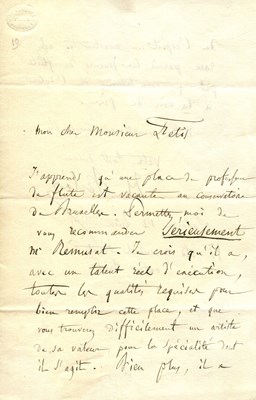 mon cher Monsieur Fetis
J'apprends qu'une place de professeur
de flûte est vacante au conservatoire
de Bruxelles. Permettez moi de
vous recommander Sérieusement
Mr Remusat. Je crois qu'il a,
avec un talent réel d'exécution,
toutes les qualités requises pour
bien remplir cette place, et que
vous trouverez difficilement un artiste
de sa valeur pour la spécialité dont
il s'agit. Bien plus, il a